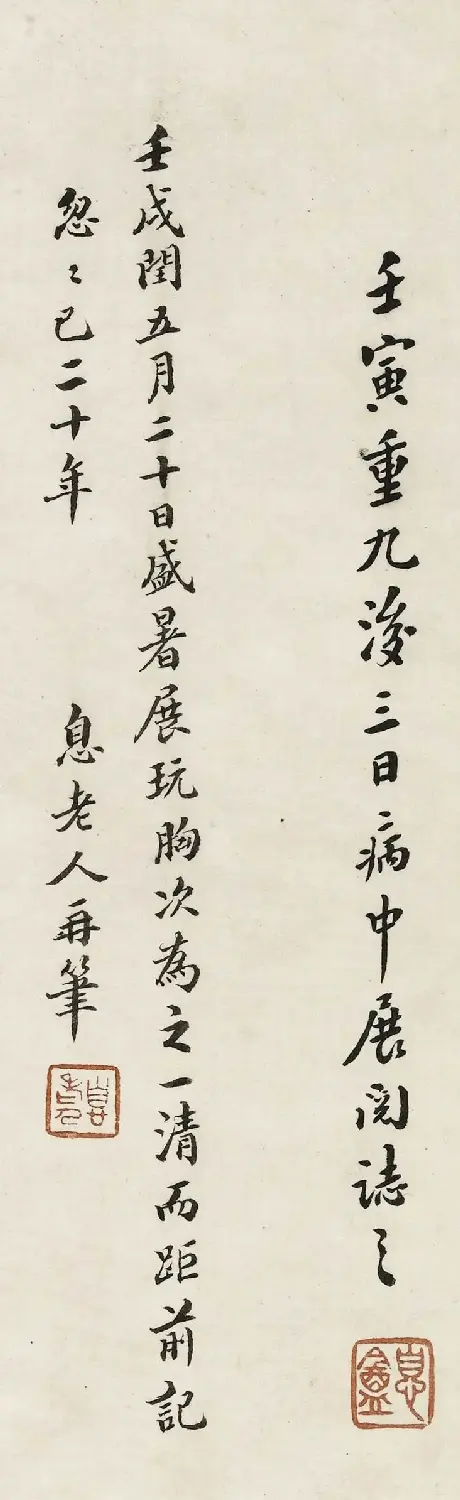 壬寅重九後三日病中展閱誌之
壬戌閏五月二十日盛暑展玩胸次為之一清而距前記
忽〻已二十年　息老人再筆
息盦